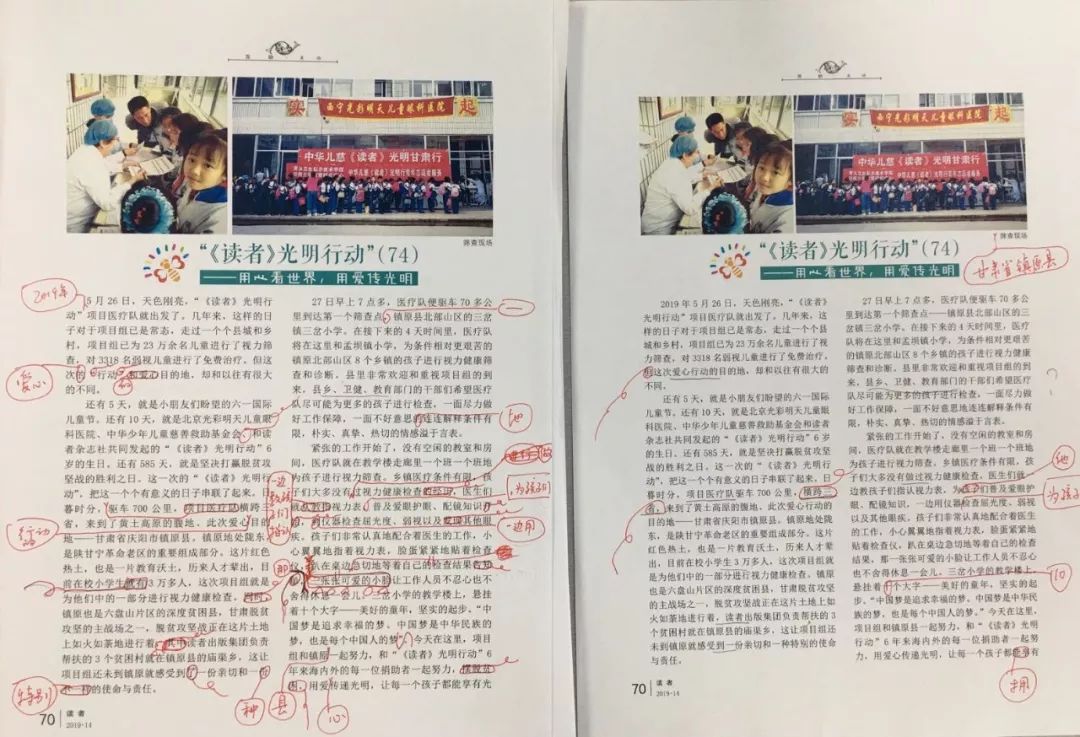 西宁光彩明天儿童眼科医院
中华儿慈《读者》光明甘肃行
筛查现场
“《读者》光明行动”(74)
——用心看世界，用爱传光明
2019年
5月26日，天色刚亮，“《读者》光明行
动”项目医疗队就出发了。几年来，这样的日
子对于项目组已是常态，走过一个个县城和乡
村，项目组已为23万余名儿童进行了视力筛
查，对3318名弱视儿童进行了免费治疗。但这
目的地，却和以往有很大
的不同。
爱心
还有5天，就是小朋友们盼望的六一国际
儿童节。还有10天，就是北京光彩明天儿童眼
科医院、中华少年儿童慈善救助基金会、和读
者杂志社共同发起的“《读者》光明行动”6岁
的生日。还有585天，就是坚决打赢脱贫攻
坚战的胜利之日。这一次的“《读者》光明行
动”，把这一个个有意义的日子串联了起来。日
暮时分，驱车700公里，项目医疗队横跨三
省，来到了黄土高原的腹地，此次爱心
目的地——甘肃省庆阳市镇原县。镇原地处陇东，
是陕甘宁革命老区的重要组成部分。这片红色
热土，也是一片教育沃土，历来人才辈出，目
前在校小学生就有3万多人，这次项目组就是
为他们中的一部分进行视力健康检查。同时，
镇原也是六盘山片区的深度贫困县，甘肃脱贫
攻坚的主战场之一，脱贫攻坚战正在这片土地
上如火如荼地进行着，其中读者出版集团负责
帮扶的3个贫困村就在镇原县的庙渠乡，这让
项目组还未到镇原就感受到了一份亲切和一份
的使命与责任。
行动
特别
种
县
心
27日早上7点多，医疗队便驱车70多公
里到达第一个筛查点，镇原县北部山区的三岔
镇三岔小学。在接下来的4天时间里，医疗队
将在这里和孟坝镇小学，为条件相对更艰苦的
镇原北部山区8个乡镇的孩子进行视力健康筛
查和诊断。县里非常欢迎和重视项目组的到
来，县乡、卫健、教育部门的干部们希望医疗
队尽可能为更多的孩子进行检查，一面尽力做
好工作保障，一面不好意思的连连解释条件有
限，朴实、真挚、热切的情感溢于言表。
紧张的工作开始了，没有空闲的教室和房
间，医疗队就在教学楼走廊里一个班一个班地
为孩子们进行视力检查。乡镇医疗条件有限，孩
子们大多没有过视力健康检查的经历，医生们
视力表，普及爱眼护眼、配镜知识
仪器检查屈光度、弱视以及发现其他眼
疾。孩子们非常认真地配合着医生的工作，小
心翼翼地指着视力表，脸蛋紧紧地贴着检查
仪，趴在桌边急切地等着自己的检查结果
一张张可爱的小脸让工作人员不忍心也不
舍得休息一会儿。三岔小学的教学楼上，悬挂
着十个大字——美好的童年，坚实的起步。“中
国梦是追求幸福的梦。中国梦是中华民族的
梦，也是每个中国人的梦”，今天在这里，项目
组和镇原一起努力，和“《读者》光明行动”6
年来海内外的每一位捐助者一起努力，摆脱贫
困，用爱传递光明，让每一个孩子都能享有光
地
，为孩子们
一边用
70 读者
2019·14
西宁光彩明天儿童眼科医院
中华儿慈《读者》光明甘肃行
筛查现场
甘肃省镇原县
“《读者》光明行动”(74)
——用心看世界，用爱传光明
2019年5月26日，天色刚亮，“《读者》
光明行动”项目医疗队就出发了。几年来，这
样的日子对于项目组已是常态，走过一个个县
城和乡村，项目组已为23万余名儿童进行了
视力筛查，对3318名弱视儿童进行了免费治疗。
但这次爱心行动的目的地，却和以往有很大的
不同。
还有5天，就是小朋友们盼望的六一国际
儿童节。还有10天，就是北京光彩明天儿童眼
科医院、中华少年儿童慈善救助基金会和读者
杂志社共同发起的“《读者》光明行动”6岁
的生日。还有585天，就是坚决打赢脱贫攻坚
战的胜利之日。这一次的“《读者》光明行动”，
把这一个个有意义的日子串联了起来。日暮时
分，项目医疗队驱车700公里，横跨三
省，来到了黄土高原的腹地。此次爱心行动的
目的地——甘肃省庆阳市镇原县。镇原地处陇东，
是陕甘宁革命老区的重要组成部分。这片红色
热土，也是一片教育沃土，历来人才辈出，目
前在校小学生3万多人，这次项目组就是
为他们中的一部分进行视力健康检查。镇原县
也是六盘山片区的深度贫困县，甘肃脱贫攻坚
的主战场之一，脱贫攻坚战正在这片土地上如
火如荼地进行着，读者出版集团负责帮扶的3
个贫困村就在镇原县的庙渠乡，这让项目组还
未到镇原就感受到一份亲切和一种特别的使命
与责任。
27日早上7点多，医疗队便驱车70多公
里到达第一个筛查点——镇原县北部山区的三
岔镇三岔小学。在接下来的4天时间里，医疗
队将在这里和孟坝镇小学，为条件相对更艰苦
的镇原北部山区8个乡镇的孩子进行视力健康
筛查和诊断。县里非常欢迎和重视项目组的到
来，县乡、卫健、教育部门的干部们希望医疗
队尽可能为更多的孩子进行检查，一面尽力做
好工作保障，一面不好意思地连连解释条件有
限，朴实、真挚、热切的情感溢于言表。
紧张的工作开始了，没有空闲的教室和房
间，医疗队就在教学楼走廊里一个班一个班地
为孩子们进行视力检查。乡镇医疗条件有限，孩
子们大多没有做过视力健康检查，医生们
边教孩子们指认视力表，为孩子们普及爱眼护
眼、配镜知识，一边用仪器检查屈光度、弱视
以及其他眼疾。孩子们非常认真地配合着医生
的工作，小心翼翼地指着视力表，脸蛋紧紧地
贴着检查仪，趴在桌边急切地等着自己的检查
结果，那一张张可爱的小脸让工作人员不忍心
也不舍得休息一会儿。三岔小学的教学楼上，
悬挂着个大字——美好的童年，坚实的起
步。“中国梦是追求幸福的梦。中国梦是中华民
族的梦，也是每个中国人的梦。”今天在这里，
项目组和镇原县一起努力，和“《读者》光明行
动”6年来海内外的每一位捐助者一起努
力，用爱心传递光明，让每个孩子都有
他
为孩们
10
拥
70 读者
2019·14